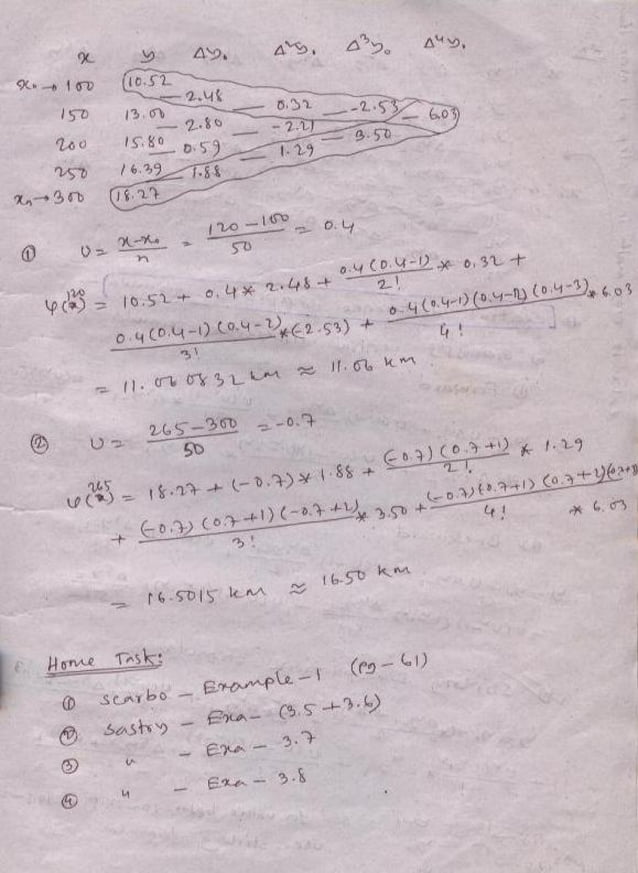 x y Δy₀ Δ²y₀ Δ³y₀ Δ⁴y₀
x₀ → 100 10.52
2.48 0.32 -2.53 6.03
150 13.00
2.80 -2.21 3.50
200 15.80 0.59 1.29
250 16.39 1.88
xₙ → 300 18.27
① U = x-x₀/n = 120-100/50 = 0.4
φ(120) = 10.52 + 0.4 * 2.48 + 0.4(0.4-1)/2! * 0.32 +
0.4(0.4-1)(0.4-2)/3! * (-2.53) + 0.4(0.4-1)(0.4-2)(0.4-3)/4! * 6.03
= 11.060832 km ≈ 11.06 km
② U = 265-300/50 = -0.7
φ(265) = 18.27 + (-0.7) * 1.88 + (-0.7)(0.7+1)/2! * 1.29
+ (-0.7)(0.7+1)(-0.7+2)/3! * 3.50 + (-0.7)(0.7+1)(0.7+2)/4! * 6.03
= 16.5015 km ≈ 16.50 km
Home Task:
① scarbo - Example-1 (pg-61)
② Sastry - Exa - (3.5+3.6)
③ " - Exa - 3.7
④ " - Exa - 3.8